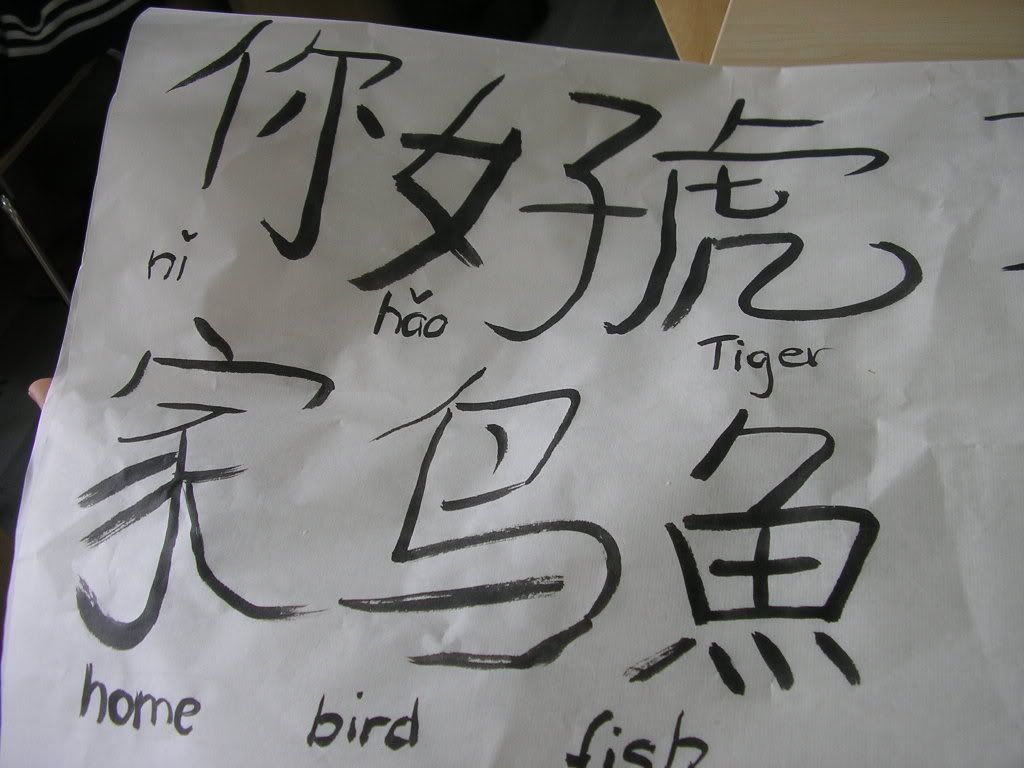 你好虎
nǐ hǎo Tiger
家鸟魚
home bird fish